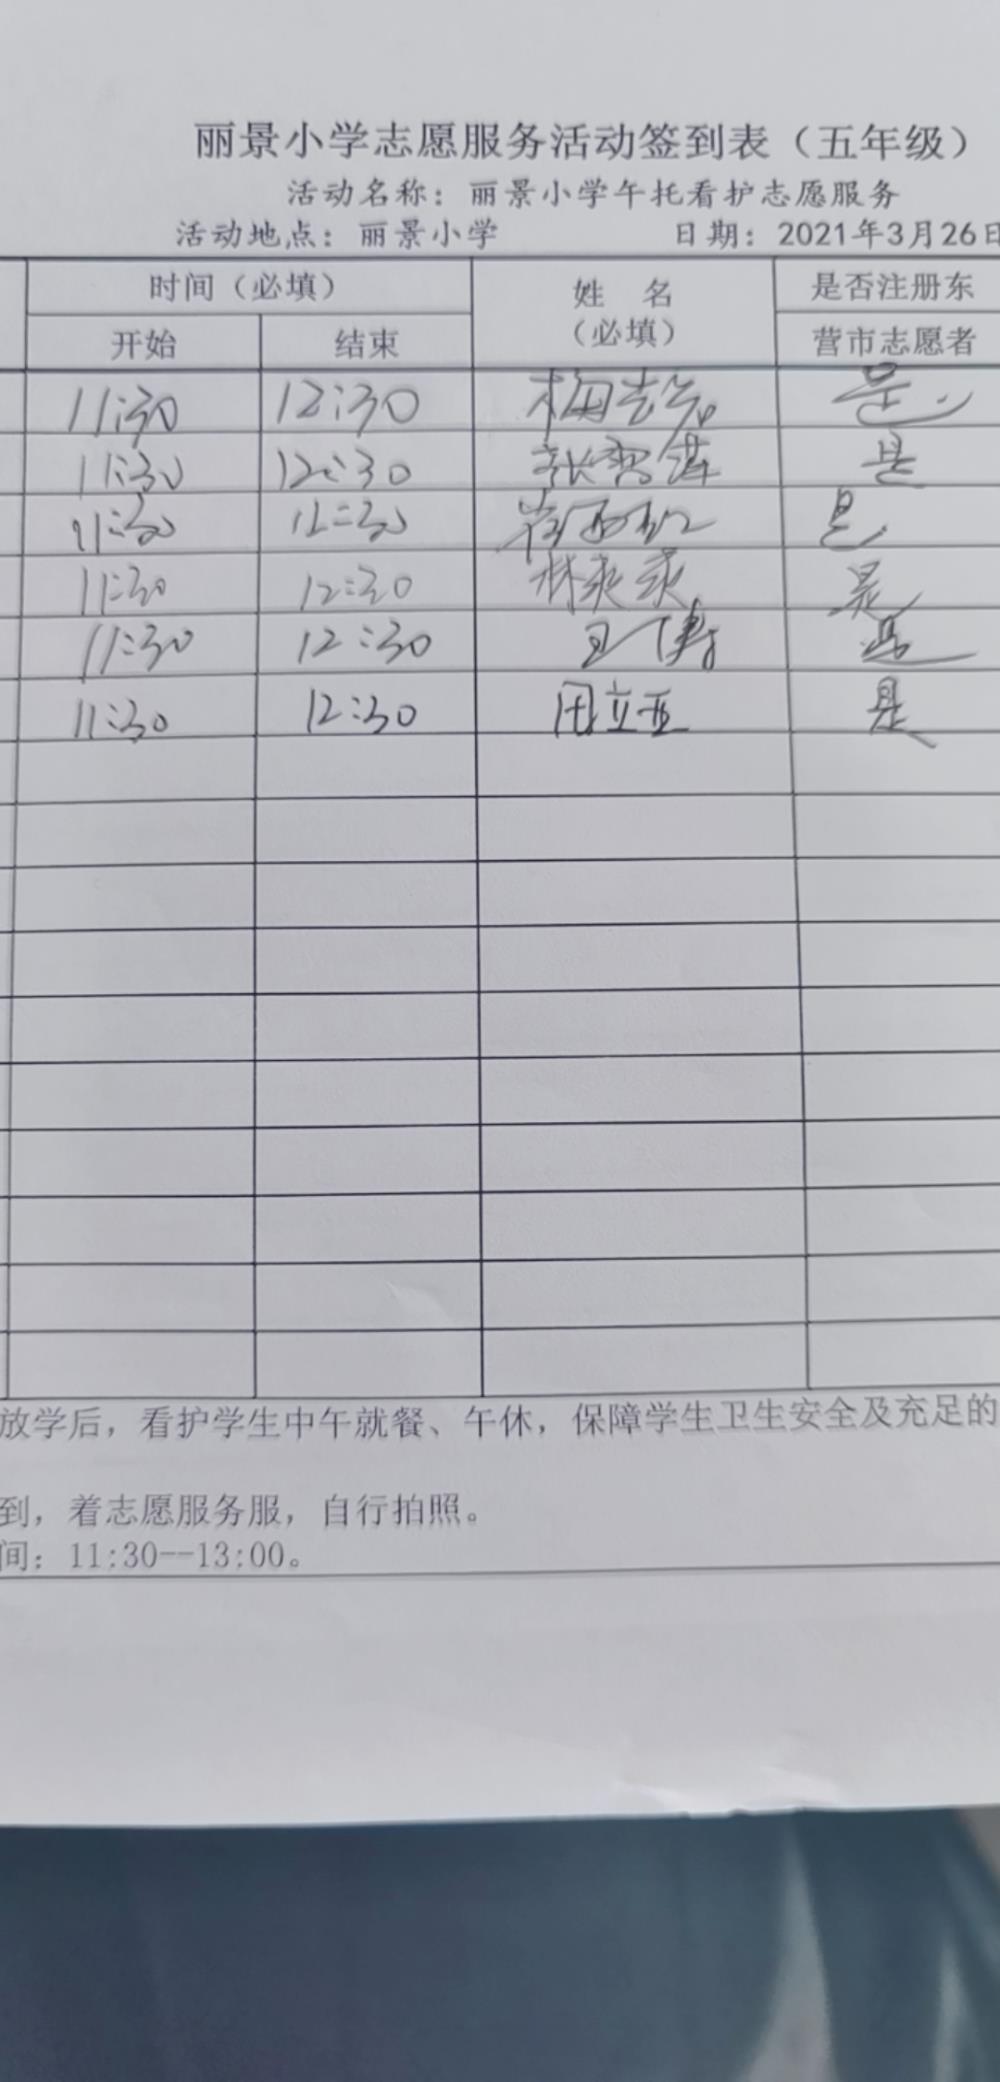 丽景小学志愿服务活动签到表（五年级）
活动名称：丽景小学午托看护志愿服务
活动地点：丽景小学 日期：2021年3月26日
时间（必填） 姓 名 是否注册东
开始 结束 （必填） 营市志愿者
11:30 12:30 是
11:30 12:30 是
11:30 12:30 是
11:30 12:30 林爽爽 是
11:30 12:30 王倩 是
11:30 12:30 田立亚 是
放学后，看护学生中午就餐、午休，保障学生卫生安全及充足的
到，着志愿服务服，自行拍照。
间：11:30--13:00。